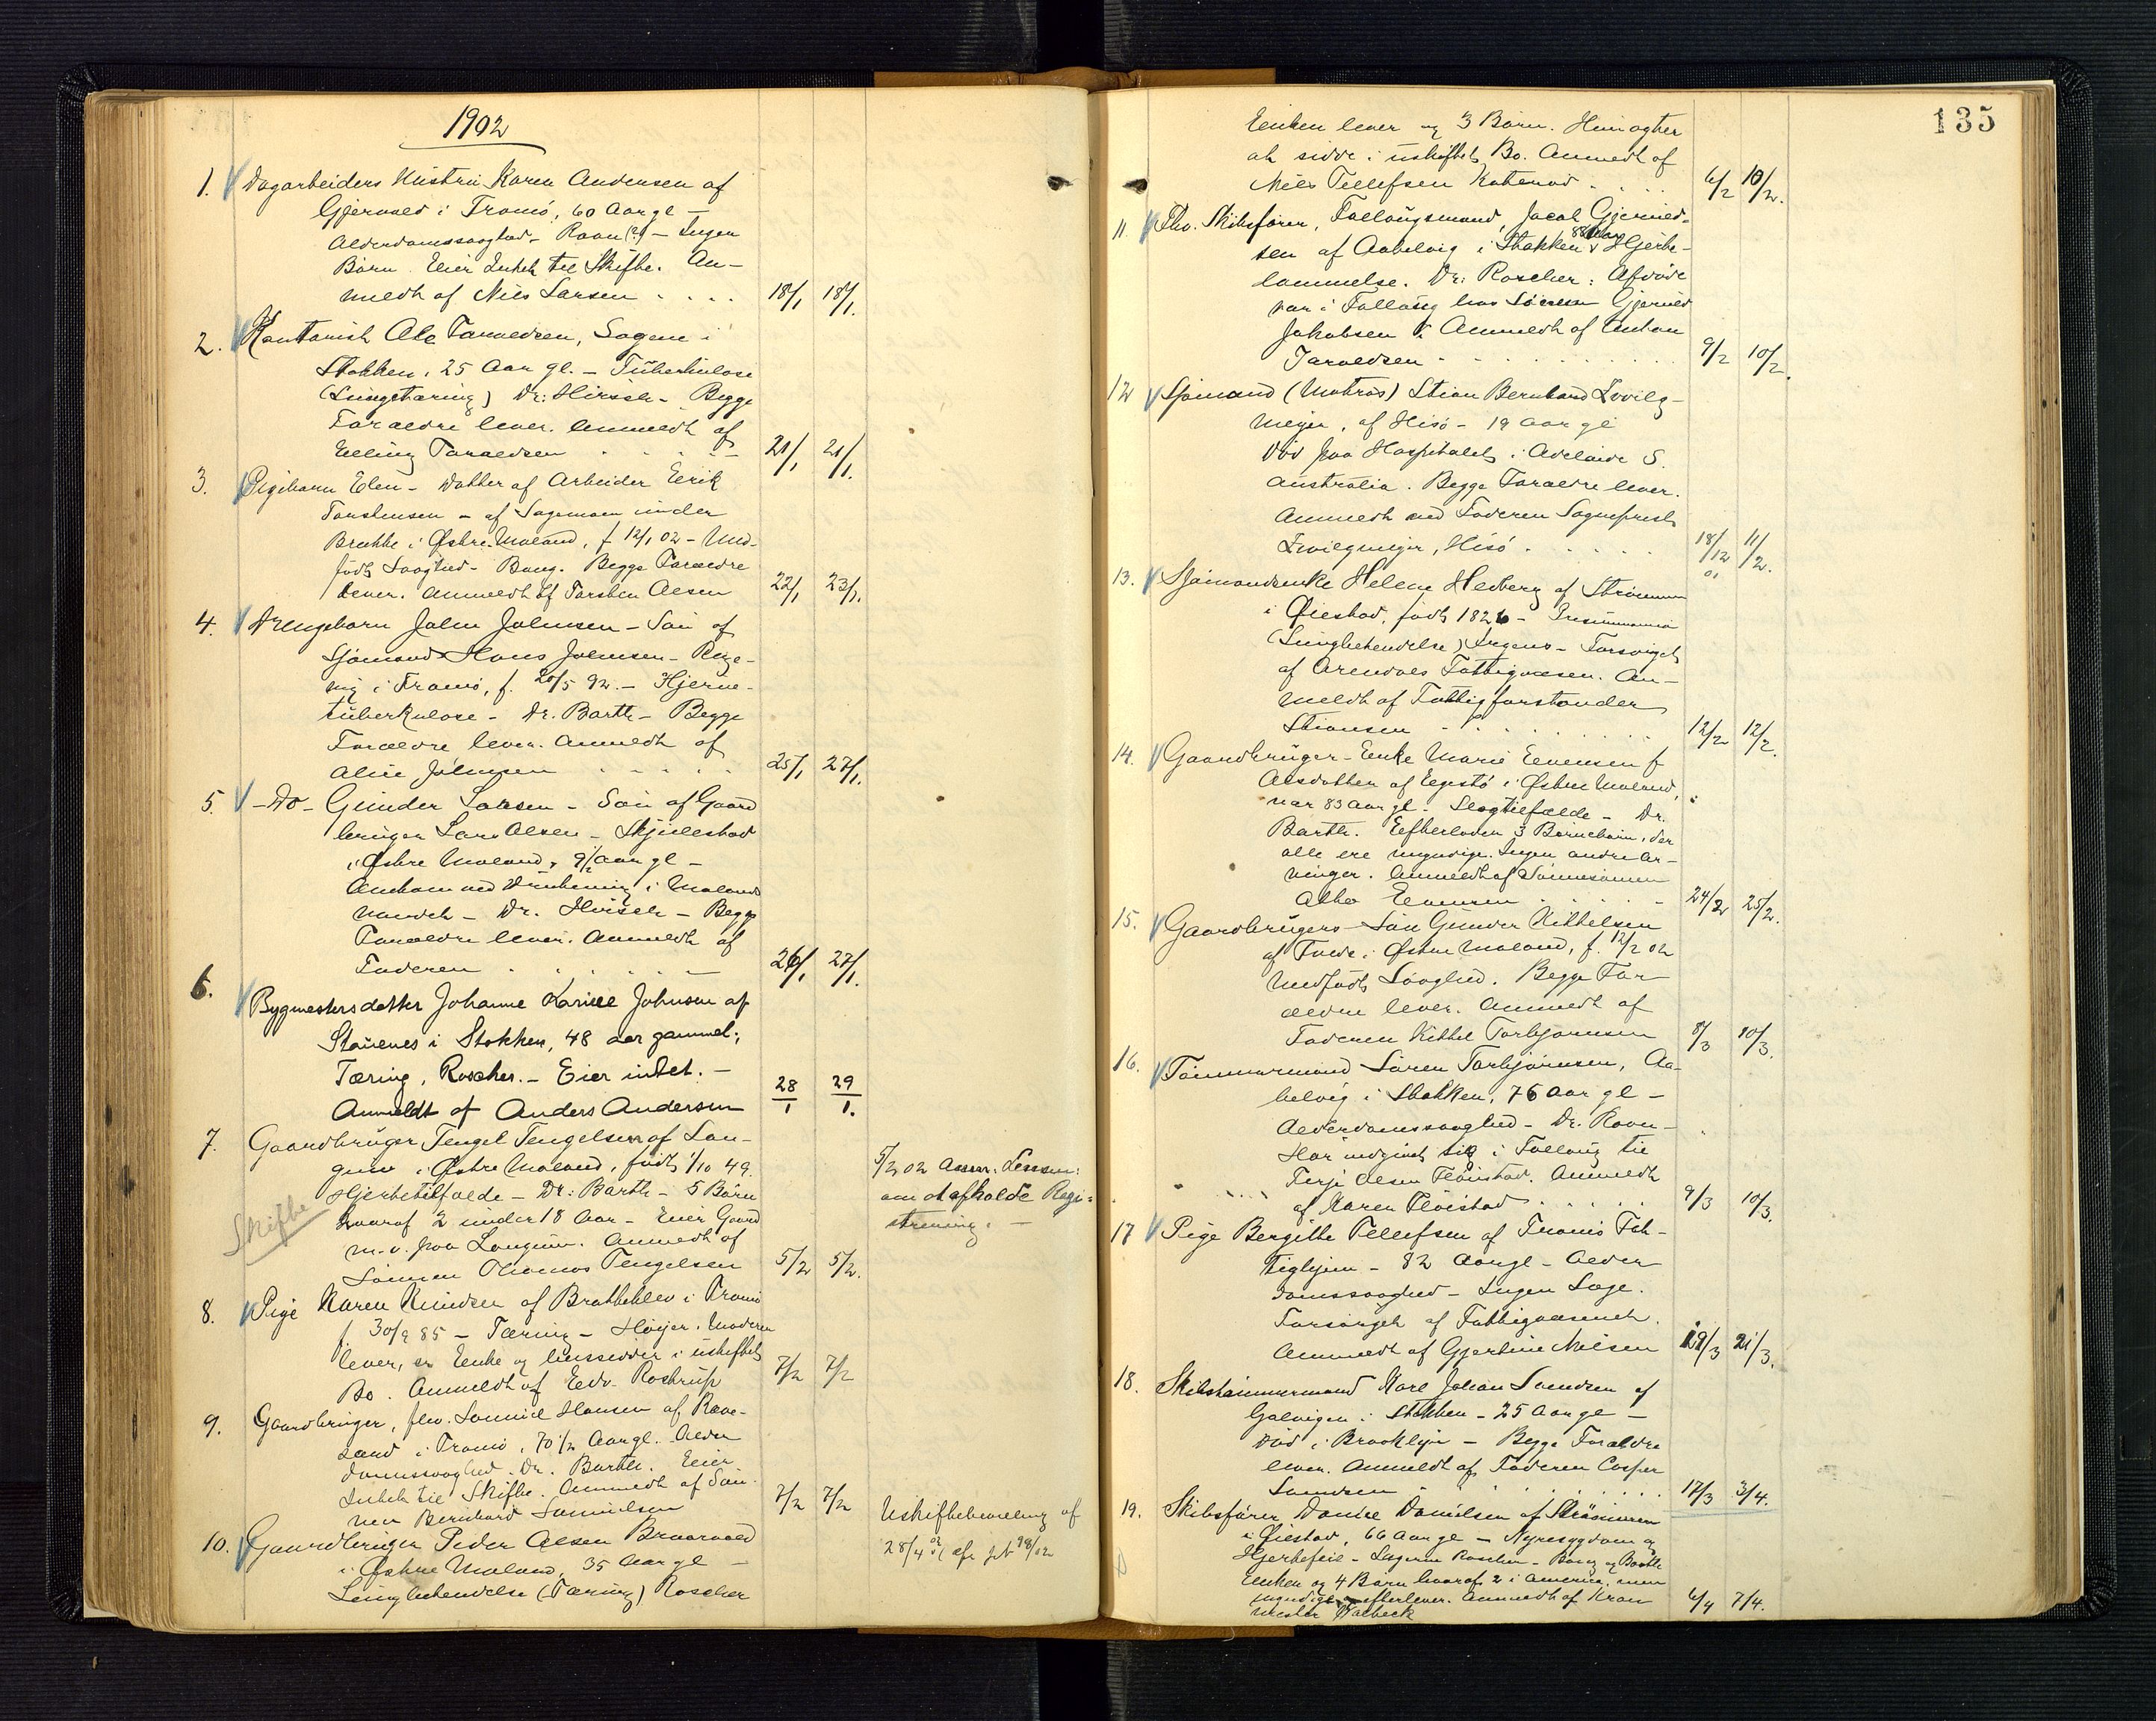 1902
1. Dagarbeiders Hustru Karen Andersen af
Gjervold i Tromö, 60 Aar gl —
Alderdomssvaghed - Ravn (?) — Ingen
Börn. Eier Intet til Skifte. An-
meldt af Niels Larsen . . . . 18/1 18/1.
2. Kontorist Ole Taraldsen, Sagene i
Stokken, 25 Aar gl. — Tüberkulose
(Lungetæring) Dr: Hirsch - Begge
Forældre lever. Anmeldt af
Elling Taraldsen . . . . 21/1 21/1.
3. Pigebarn Elen - Datter af Arbeider Eerik
Torstensen - af Sagemoen under
Brække i Østre Moland, f 12/1 02 - Med-
födt Svaghed - Bang. Begge Forældre
lever. Anmeldt af Torsten Olsen 22/1 23/1.
4. Drengebarn John Johnsen - Sön af
Sjömand Hans Johnsen - Rege-
vig i Tromö, f. 20/5 92. — Hjerne-
tüberkulose - Dr. Barth - Begge
Forældre lever. Anmeldt af
Aline Johnsen . . . . . 25/1 27/1.
5 - Do - Gunder Larsen - Sön af Gaard
bruger Lars Olsen - Skjulestad
i Østre Moland, 9 1/2 Aar gl —
Omkom ved Drukning i Molands
vandet - Dr. Hirsch - Begge
Forældre lever. Anmeldt af
Faderen . . . . . 26/1 27/1.
6. Bygmestersdatter Johanne Karine Johnsen af
Stöuenes i Stokken, 48 aar gammel;
Tæring, Roscher. - Eier intet. -
Anmeldt af Anders Andersen 28/1 29/1.
7. Gaardbruger Tengel Tengelsen af Lon-
gum i Østre Moland, födt 1/10 49.
Hjertetilfælde - Dr: Barth - 5 Börn
hvoraf 2 under 18 Aar - Eier Gaard
m.v. paa Longum. Anmeldt af
Sönnen Thomas Tengelsen 5/2 5/2.
Skifte
5/2 02 Lensm:
om at afholde Regi-
strering. —
8. Pige Karen Knudsen af Bratteklev i Tromö
f. 30/9 85 - Tæring - Höyer. Moderen
lever, er Enke og hensidder i uskiftet
Bo. Anmeldt af Edv. Rostrup 7/2 7/2
9. Gaardbruger, fhv. Samuel Hansen af Rave-
sand i Tromö, 70 1/2 Aar gl. Alder
domssvaghed. Dr. Barth. Eier
Intet til Skifte. Anmeldt af Sön-
nen Bernhard Samuelsen 7/2 7/2
10. Gaardbruger Peder Olsen Braarvold
i Østre Moland, 35 Aar gl —
Lungebetændelse (Tæring) Roscher
Uskiftebevilling af
28/4 02
135
Enken lever og 3 Börn. Hun agter
at sidde i uskiftet Bo. Anmeldt af
Niels Tellefsen Kattenod . . . 6/2 10/2.
11. Fhv. Skibsförer, Follaugsmand, Jacob Gjeruld-
sen af Aabelvig i Stokken, 88 Aar Hjerte-
lammelse. Dr: Roscher: Afdöde
var i Follaug hos Sönnen Gjeruld
Jakobsen. Anmeldt af Anton
Taraldsen . . . . . . 9/2 10/2.
12 Sjömand (Matros) Stian Bernhard Zwilg-
meyer, af Hisö - 19 Aar gl
död paa Hospitalet i Adelaide S.
Australia. Begge Forældre lever.
Anmeldt ved Faderen Sognepræst
Zwilgmeyer, Hisö . . . . . 18/12 01 11/2.
13. Sjömandsenke Helene Hedberg af Strömmen
i Øiestad, födt 1826 -
(Lungebetændelse) Jrgens - Forsörget
af Arendals Fattigvæsen. An-
meldt af Fattigforstander
Stiansen . . . . . . 12/2 12/2.
14. Gaardbruger-Enke Marie Evensen f
Olsdatter af Egestö i Østre Moland,
var 83 Aar gl. Slagtilfælde - Dr.
Barth. Efterlader 3 Börnebörn, der
alle ere myndige. Ingen andre Ar-
vinger. Anmeldt af Sönnesönnen
Evensen . . . . 24/2 25/2.
15. Gaardbrugers Sön Gunder Kittelsen
af Tvede i Østre Moland, f. 12/2 02
Medfödt Svaghed. Begge For
ældre lever. Anmeldt af
Faderen Kittel Torbjörnsen 8/3 10/3.
16. Tömmermand Sören Torbjörnsen, Aa-
belvig i Stokken, 76 Aar gl —
Alderdomssvaghed - Dr. Ravn -
Har indgivet sig i Follaug til
Terje Olsen Flöistad. Anmeldt
af Karen Flöistad . . . . . 9/3 10/3.
17 Pige Bergitte Tellefsen af Tromö Fat-
tighjem - 82 Aar gl - Alder
domssvaghed - Ingen Læge.
Forsörget af Fattigvæsenet.
Anmeldt af Gjertine Nilsen 19/3 21/3.
18. Skibstömmermand Karl Johan Svendsen af
Galvigen i Stokken - 25 Aar gl —
död i Brooklyn - Begge Forældre
lever. Anmeldt af Faderen Casper
Svendsen . . . . . . . 17/3 3/4.
19. Skibsförer Daniel Danielsen af Strömmen
i Øiestad, 66 Aar gl - Nyresygdom og
Hjertefeil - Lægerne Roscher - Bang og Barth
Enken og 4 Börn hvoraf 2 i America, men
myndige efterlever. Anmeldt af Kran
mester Holbeck 6/4 7/4.